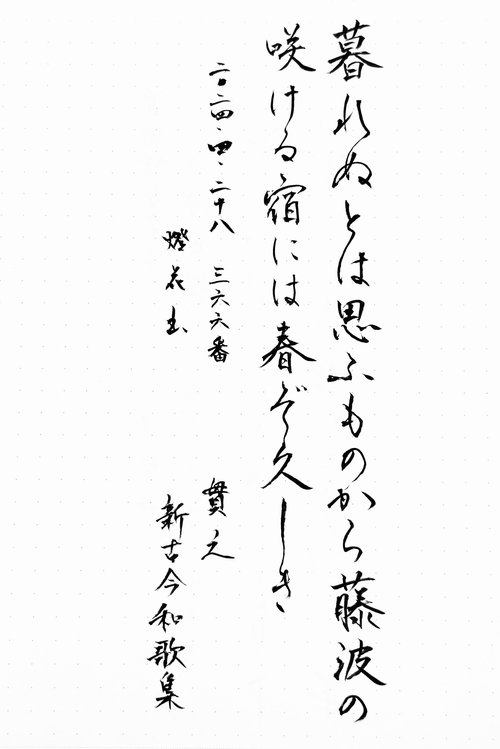 暮れぬとは思ふものから藤波の
咲ける宿には春ぞ久しき
二〇二四・四・二十八 三六六番
燈花書
貫之
新古今和歌集